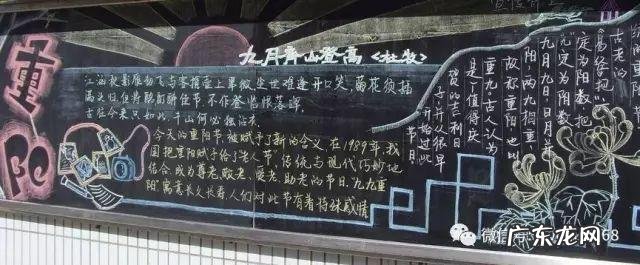 重阳
九月齐山登高<杜牧>
江涵秋影雁初飞与客携壶上翠微尘世难逢开口笑,菊花须插
满头归但将酩酊酬佳节不作登临恨落晖,
古往今来只如此牛山何必独沾衣
今天的重阳节,被赋予了新的含义,在1989年,我
国把重阳赋予给了老人节,传统与现代巧妙地
结合,成为尊老,敬老,爱老,助老的节日.九九重
阳,寓意长久长寿.人们对此节有着特殊感情
古老的
《易经》把“
定为阴数,把
九”定为阳数,
九月九日,日月并
阳,两九相重,
故称重阳,也
重九,古人认为
是个值得庆
贺的吉利日
子,并从很早
开始过此
节日.
微信
68
广东龙网